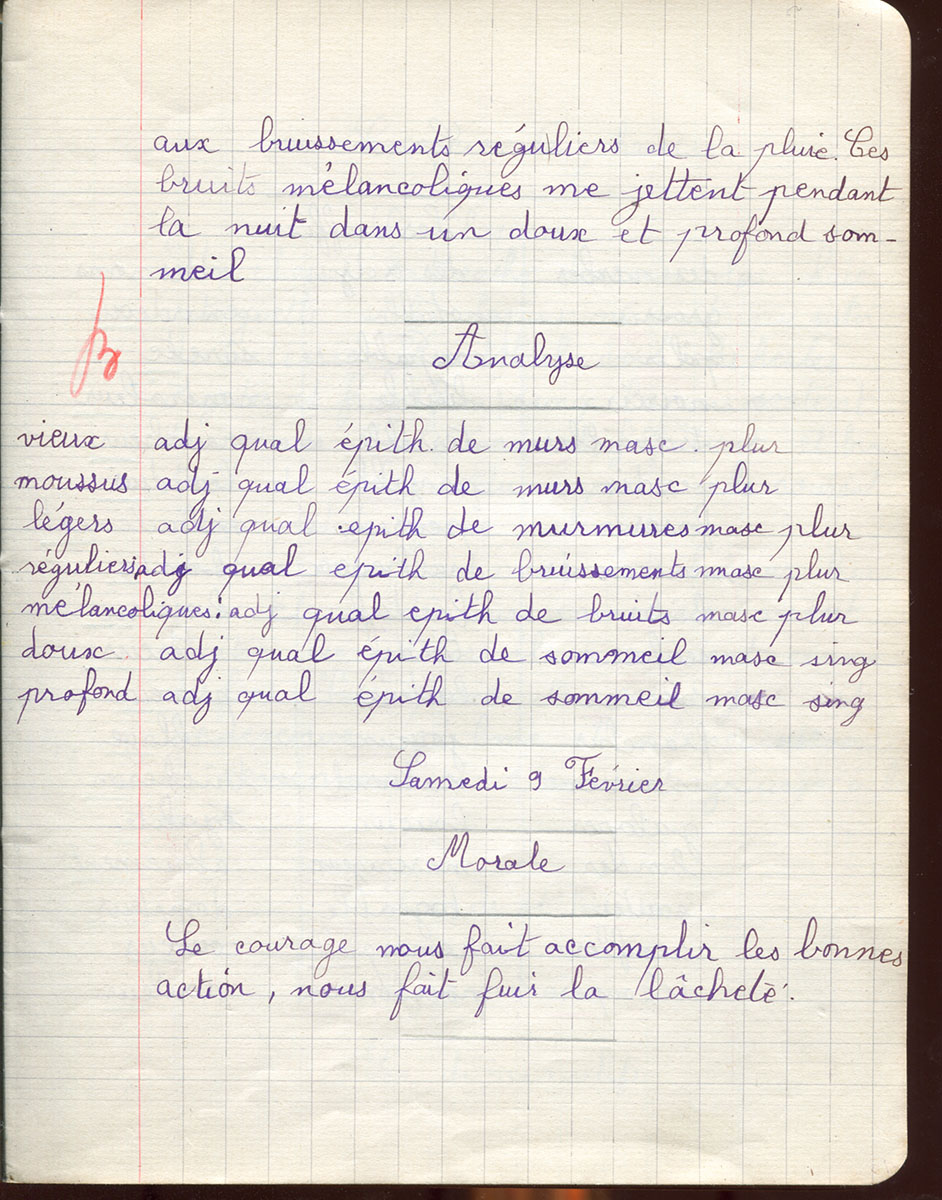 aux bruissements réguliers de la pluie. Ces
bruits mélancoliques me jettent pendant
la nuit dans un doux et profond som-
meil
B
Analyse
vieux adj qual épith. de murs masc. plur
moussus adj qual épith de murs masc plur
légers adj qual epith de murmures masc plur
réguliers adj qual epith de bruissements masc plur
mélancoliques: adj qual epith de bruits masc plur
doux adj qual épith de sommeil masc sing
profond adj qual épith de sommeil masc sing
Samedi 9 Février
Morale
Le courage nous fait accomplir les bonnes
action, nous fait fuir la lâcheté.